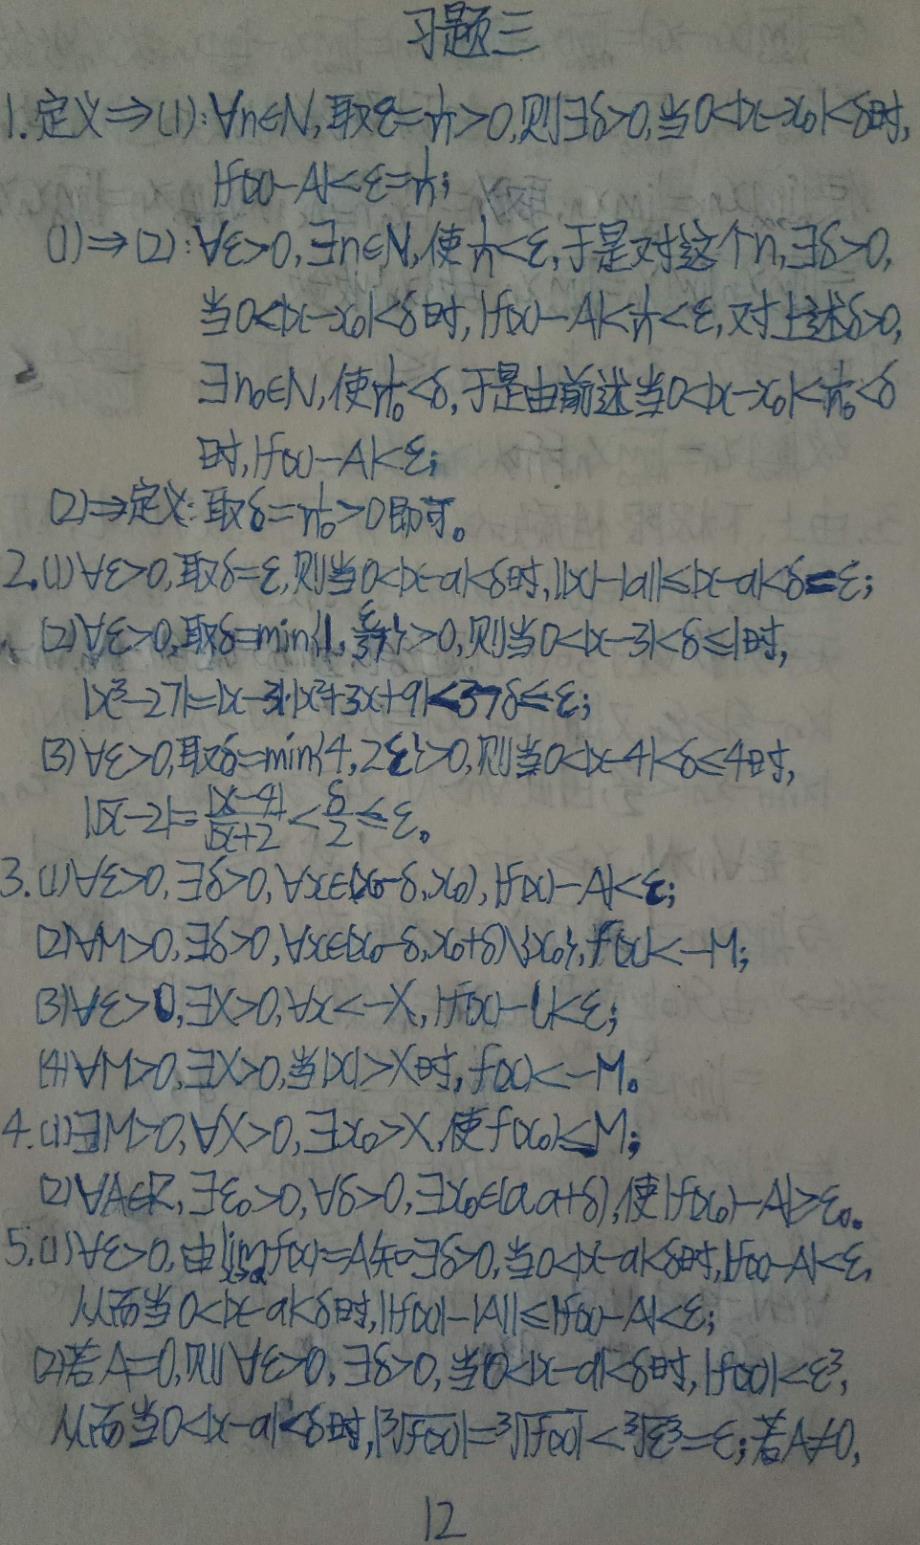 习题三
1.定义⇒(1):∀n∈N,取ε=1/n>0,则∃δ>0,当0<|x-x₀|<δ时,
|f(x)-A|<ε=1/n;
(1)⇒(2):∀ε>0,∃n∈N,使1/n<ε,于是对这个n,∃δ>0,
当0<|x-x₀|<δ时,|f(x)-A|<1/n<ε,对上述δ>0,
∃n₀∈N,使1/n₀<δ,于是由前述当0<|x-x₀|<1/n₀<δ
时,|f(x)-A|<ε;
(2)⇒定义:取δ=1/n₀>0即可。
2.(1)∀ε>0,取δ=ε,则当0<|x-a|<δ时,||x|-|a||≤|x-a|<δ=ε;
(2)∀ε>0,取δ=min{1,ε/37}>0,则当0<|x-3|<δ≤1时,
|x³-27|=|x-3|·|x²+3x+9|<37δ≤ε;
(3)∀ε>0,取δ=min{4,2ε}>0,则当0<|x-4|<δ≤4时,
|√x-2|=|x-4|/(√x+2)<δ/2≤ε。
3.(1)∀ε>0,∃δ>0,∀x∈(x₀-δ,x₀),|f(x)-A|<ε;
(2)∀M>0,∃δ>0,∀x∈(x₀-δ,x₀+δ)\{x₀},f(x)<-M;
(3)∀ε>0,∃X>0,∀x<-X,|f(x)-l|<ε;
(4)∀M>0,∃X>0,当|x|>X时,f(x)<-M。
4.(1)∃M>0,∀X>0,∃x₀>X,使f(x₀)≤M;
(2)∀A∈R,∃ε₀>0,∀δ>0,∃x₀∈(a,a+δ),使|f(x₀)-A|≥ε₀。
5.(1)∀ε>0,由lim_{x→a}f(x)=A知∃δ>0,当0<|x-a|<δ时,|f(x)-A|<ε,
从而当0<|x-a|<δ时,||f(x)|-|A||≤|f(x)-A|<ε;
(2)若A=0,则∀ε>0,∃δ>0,当0<|x-a|<δ时,|f(x)|<ε³,
从而当0<|x-a|<δ时,|³√f(x)|=³√|f(x)|<³√ε³=ε;若A≠0,
12